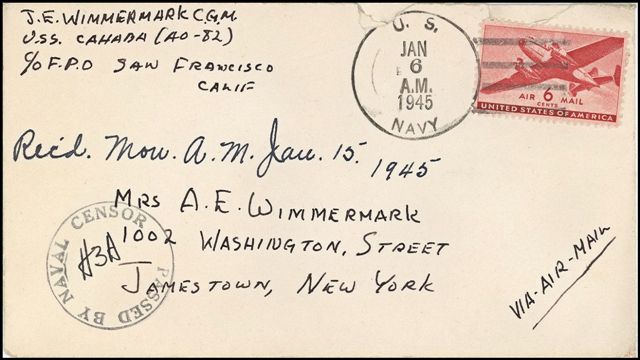 J.E. WIMMERMARK C.G.M.
U.S.S. CAHABA (AO-82)
C/O F.P.O SAN FRANCISCO
CALIF
U. S.
JAN
6
A.M.
1945
NAVY
AIR 6 MAIL
CENTS
UNITED STATES OF AMERICA
Rec'd. Mon. A.M. Jan. 15. 1945
MRS A.E. WIMMERMARK
1002 WASHINGTON, STREET
JAMESTOWN, NEW YORK
PASSED BY NAVAL CENSOR
VIA-AIR-MAIL